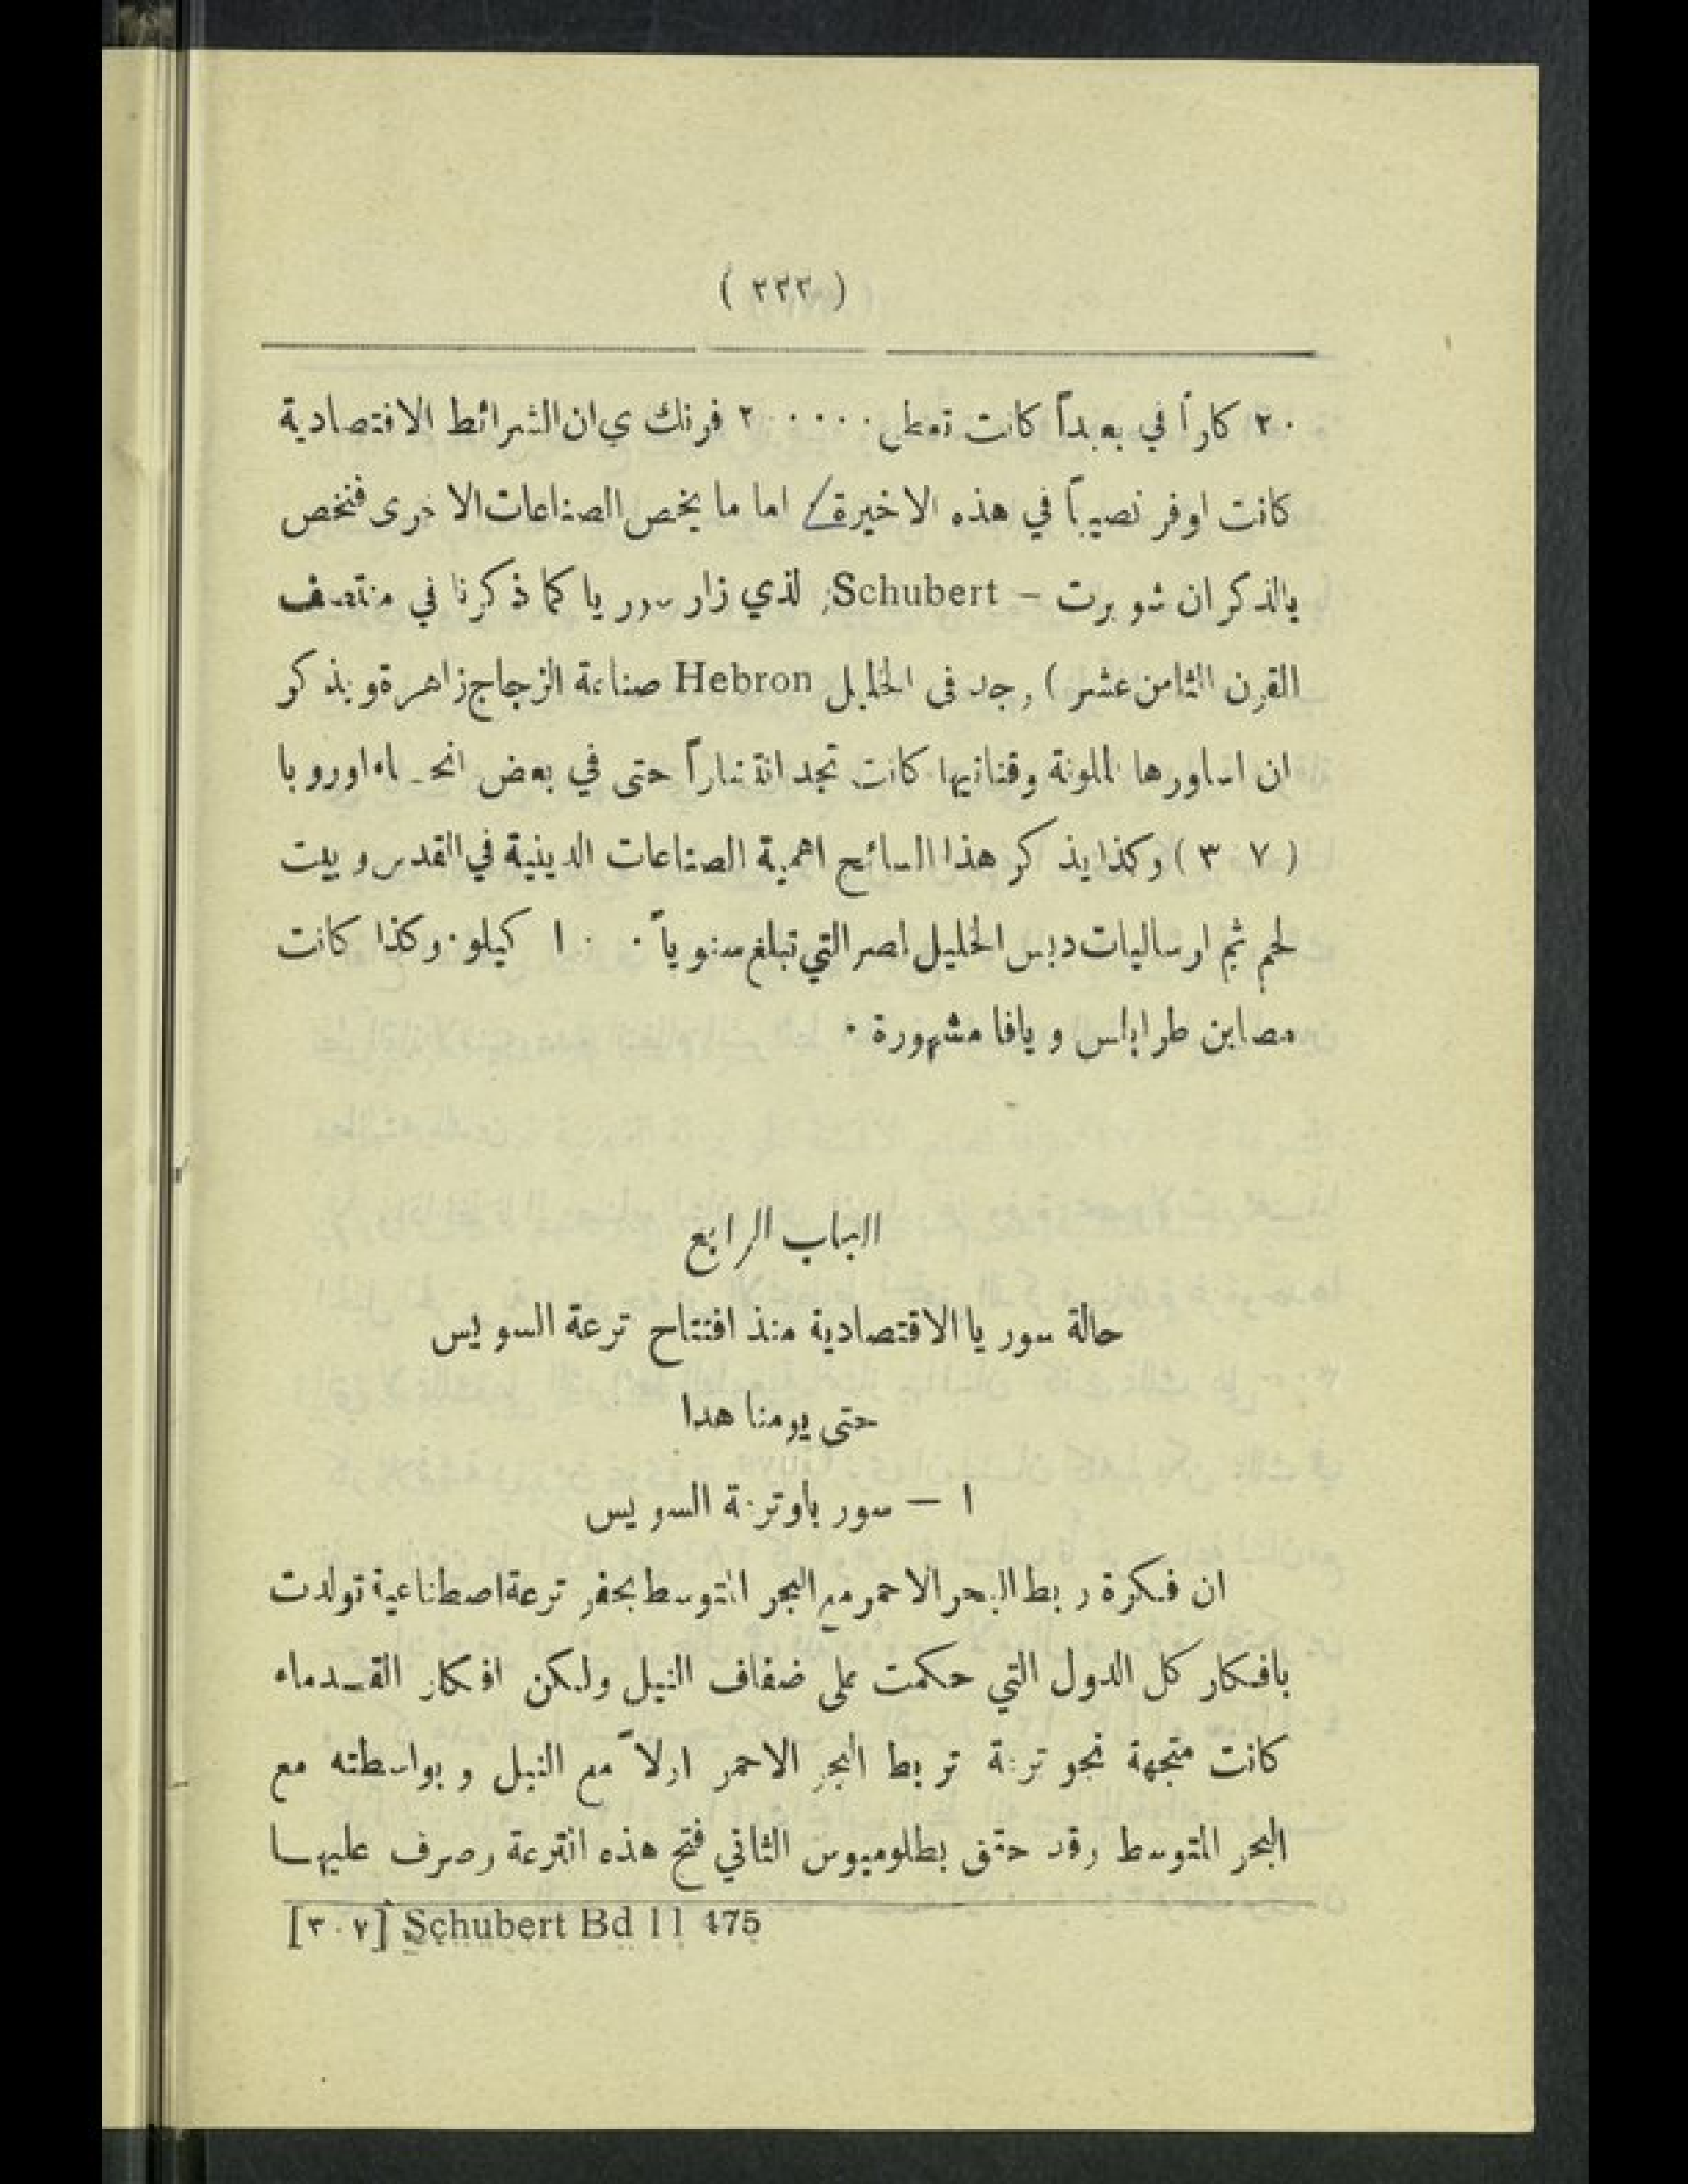 ( ٢٣٢ )
٢٠ كاراً في بعبدآ كانت تعطي ٢٠٠٠٠٠ فرنك ي ان الشرائط الاقتصادية
كانت اوفر نصيباً في هذه الاخيرة اما ما يخص الصناعات الاخرى فنخص
بالذكر ان شوبرت – Schubert الذي زار سوريا كما ذكرنا في منتصف
القرن الثامن عشر ) وجد في الخليل Hebron صناعة الزجاج زاهرة ويذكر
ان اساورها الملونة وقنانيها كانت تجد انتشاراً حتى في بعض انحـاء اوروبا
( ٣٠٧ ) وكذا يذكر هذا السائح اهمية الصناعات الدينية في القدس وبيت
لحم ثم ارساليات دبس الخليل لمصر التي تبلغ سنوياً ١٠٠٠ كيلو · وكذا كانت
مصابن طرابلس ويافا مشهورة ·
الباب الرابع
حالة سوريا الاقتصادية منذ افتتاح ترعة السويس
حتى يومنا هدا
١ — سوريا وترعة السويس
ان فكرة ربط البحر الاحمر مع البحر المتوسط بحفر ترعة اصطناعية تولدت
بافكار كل الدول التي حكمت على ضفاف النيل ولكن افكار القـدماء
كانت متجهة نحو ترعة تربط البحر الاحمر اولاً مع النيل وبواسطته مع
البحر المتوسط وقد حقق بطلوميوس الثاني فتح هذه الترعة وصرف عليهـا
[٣٠٧] Schubert Bd II 475